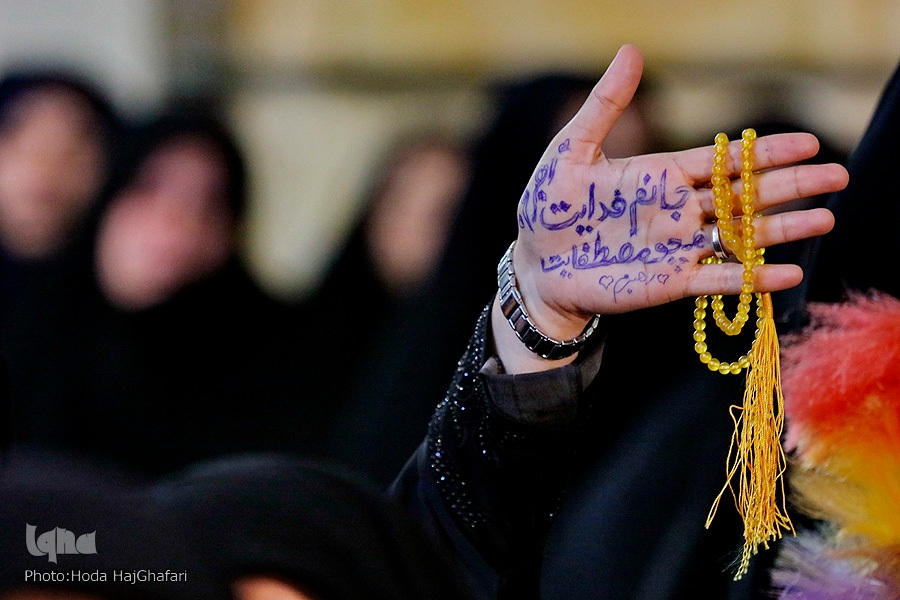 جانم فدایت
همچو مصطفایت
♡رهبرم♡
iqna
Photo:Hoda HajGhafari